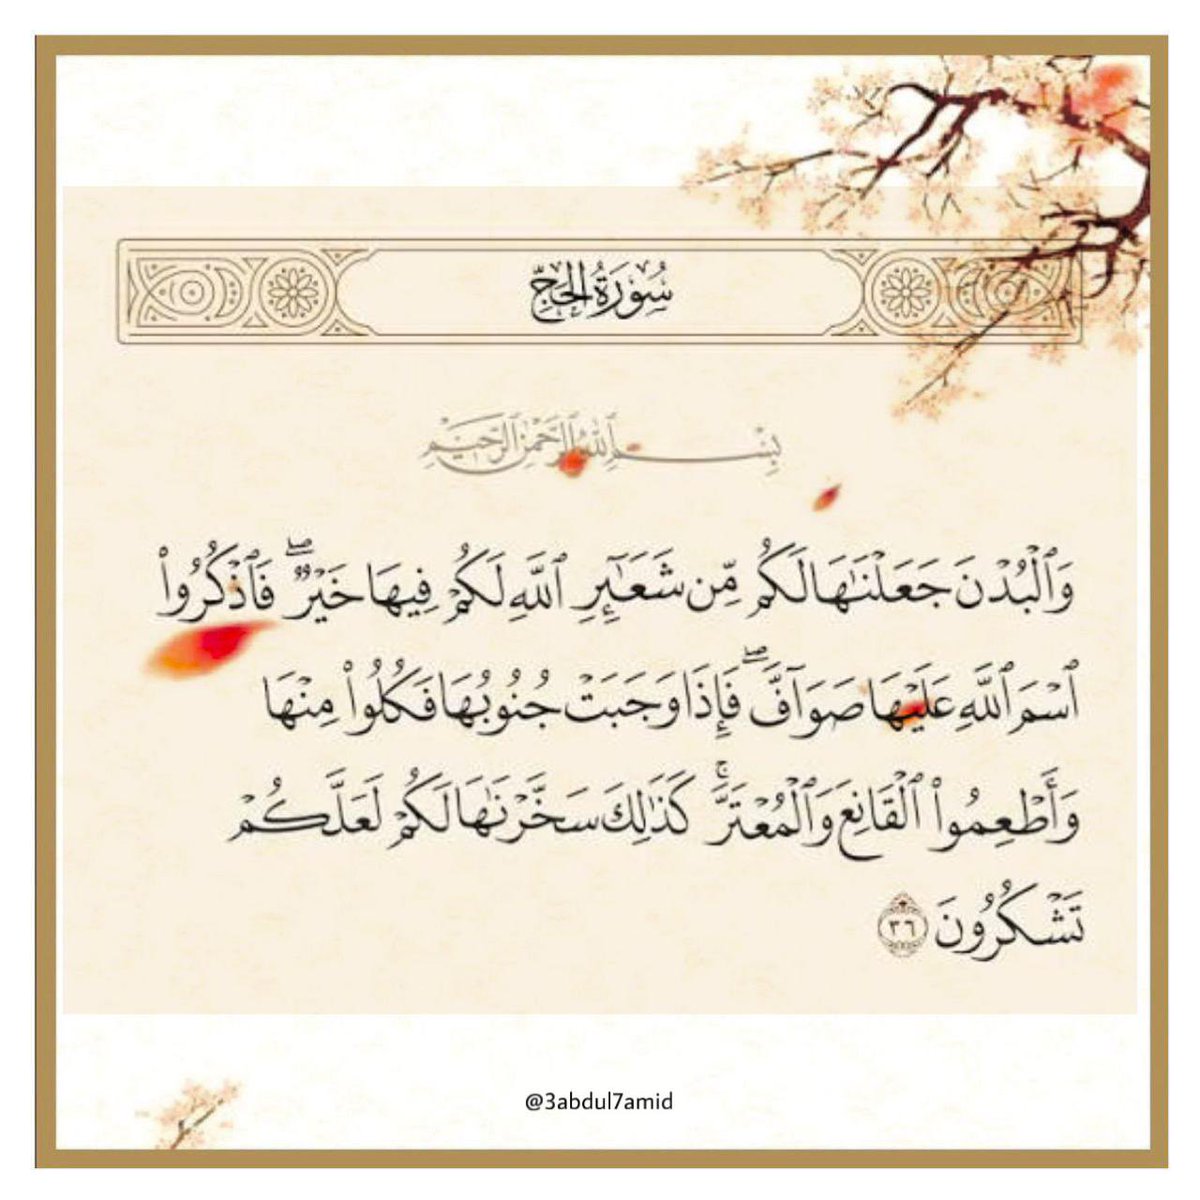 سُورَةُ الحَجِّ
بِسْمِ ٱللَّهِ ٱلرَّحْمَٰنِ ٱلرَّحِيمِ
وَٱلْبُدْنَ جَعَلْنَٰهَا لَكُم مِّن شَعَٰٓئِرِ ٱللَّهِ لَكُمْ فِيهَا خَيْرٌۖ فَٱذْكُرُوا۟
ٱسْمَ ٱللَّهِ عَلَيْهَا صَوَآفَّۖ فَإِذَا وَجَبَتْ جُنُوبُهَا فَكُلُوا۟ مِنْهَا
وَأَطْعِمُوا۟ ٱلْقَانِعَ وَٱلْمُعْتَرَّۚ كَذَٰلِكَ سَخَّرْنَٰهَا لَكُمْ لَعَلَّكُمْ
تَشْكُرُونَ ٣٦
@3abdul7amid